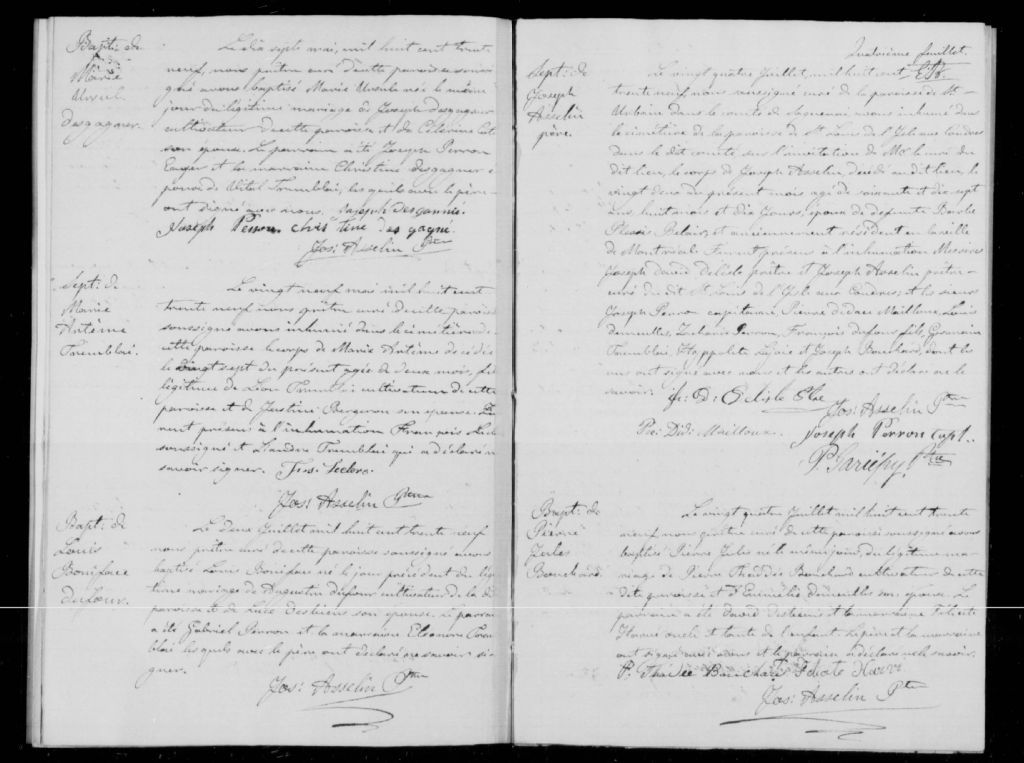 Bapt: de
Marie
Ursul
Desgagner.
Le dix sept mai, mil huit cent trente
neuf, nous prêtre curé de cette paroisse soussi-
gné avons baptisé Marie Ursule née le même
jour du légitime mariage de Joseph Desgagner
cultivateur de cette paroisse et de Célerine
son épouse. Le parrain a été Joseph Perron
Ecuyer et la marraine Christine Desgagner é-
pouse de Vital Tremblai, les quels avec le père
ont signé avec nous. Joseph desgannié.
Joseph Perron. Chris tine des gagné.
Jos: Asselin Ptre
Sépt: de
Marie
Artème
Tremblai.
Le vingt neuf mai mil huit cent
trente neuf nous prêtre curé de cette paroisse
soussigné avons inhumé dans le cimetière de
cette paroisse le corps de Marie Artème décédée
le vingt sept du présent agée de deux mois, fille
légitime de Léon Tremblai cultivateur de cette
paroisse et de Justine Bergeron son épouse. Fu-
rent présens à l'inhumation François
soussigné et Léandre Tremblai qui a déclaré ne
savoir signer. Frs: Leclerc
Jos: Asselin Ptre
Bapt: de
Louis
Boniface
Dufour.
Le deux Juillet mil huit cent trente neuf
nous prêtre curé de cette paroisse soussigné avons
baptisé Louis Boniface né le jour précédent du légi-
time mariage de Augustin Dufour cultivateur de la dite
paroisse et de Lise Desbiens son épouse. Le parrain
a été Gabriel Perron et la marraine Eléonore Trem-
blai les quels avec le père ont déclaré ne savoir si-
gner.
Jos: Asselin Ptre
Quatrième feuillet.
Sept: de
Joseph
Asselin
père.
Le vingt quatre Juillet, mil huit cent
trente neuf nous soussigné curé de la paroisse de St
Urbain dans le comté de Saguenay avons inhumé dans
le cimetière de la paroisse de St Louis de l'Isle aux Coudres
dans le dit comté sur l'invitation de Mr le curé du
dit lieu, le corps de Joseph Asselin, décédé au dit lieu, le
vingt deux du présent mois agé de soixante et dix sept
ans huit mois et dix jours, époux de defunte
Plessis Belair, et anciennement résident en la ville
de Montréal. Furent présens à l'inhumation Messires
Joseph David Delisle prêtre et Joseph Asselin prêtre
curé du dit St Louis de l'Isle aux Coudres, et les sieurs
Joseph Perron capitaine, Pierre Didace Mailloux, Louis
Demeulles, Zacharie Perron, François Dufour fils, Germain
Tremblai, Hyppolite Lajoie et Joseph Bouchard, dont les
uns ont signé avec nous et les autres ont déclaré ne le
savoir. J: D: Delisle Ptre
Jos: Asselin Ptre
Pre: Did: Mailloux. Joseph Perron capt.
P Gariépy Ptre
Bapt: de
Pierre
Jules
Bouchard.
Le vingt quatre Juillet mil huit cent trente
neuf nous prêtre curé de cette paroisse soussigné avons
baptisé Pierre Jules né le même jour du légitime ma-
riage de Pierre Thaddée Bouchard cultivateur de cette
dite paroisse et d'Euméllie Demeulles son épouse. Le
parrain a été David Desbiens et la marraine Félicité
Harvé oncle et tante de l'enfant. Le père et la marraine
ont signé avec nous et le parrain a déclaré ne le savoir.
P: Thadée Bouchard Felicité Harvé
Jos: Asselin Ptre